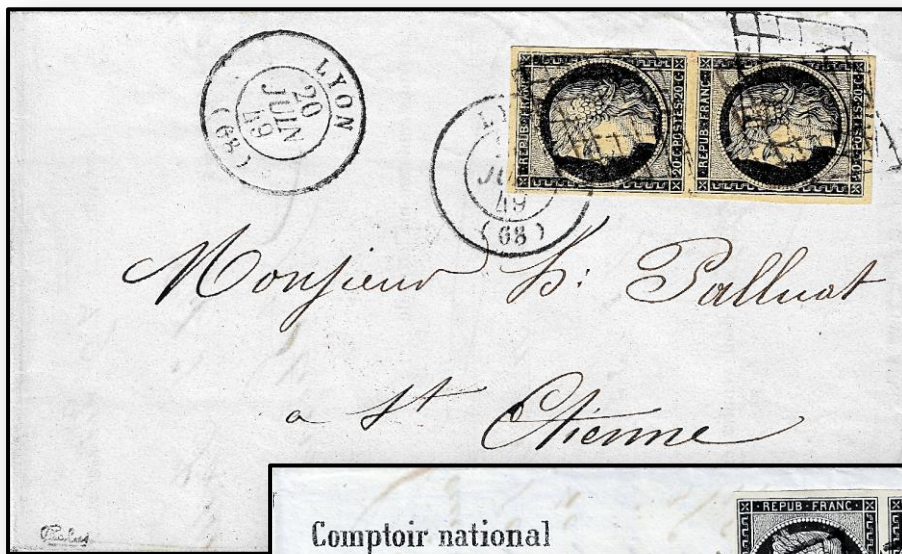 LYON
20
JUIN
49
(68)
LY
JU
49
(68)
REPUB·FRANC·
20·C·POSTES·20·C
REPUB·FRANC·
20·C·POSTES·20·C
Monsieur h: Palluat
a St Etienne
Comptoir national
REPUB·FRANC·